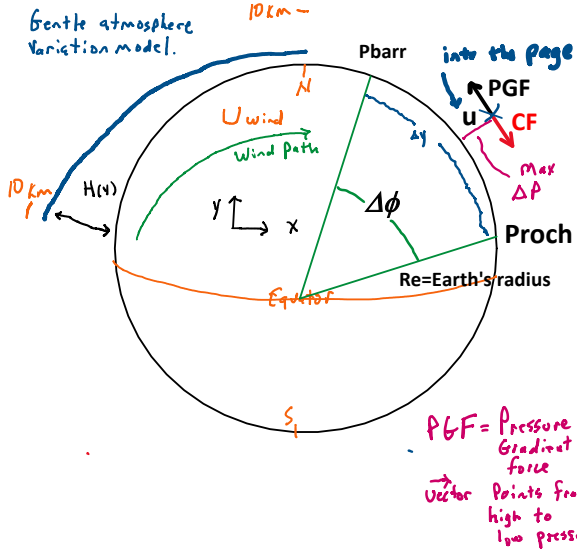 10 Km
Gentle atmosphere
variation model.
Pbarr
into the page
N
PGF
u
CF
U wind
Wind Path
Δy
max
ΔP
10 Km
H(y)
y
x
Δϕ
Proch
Re=Earth's radius
Equator
S
PGF = Pressure
Gradient
force
vector Points from
high to
low press